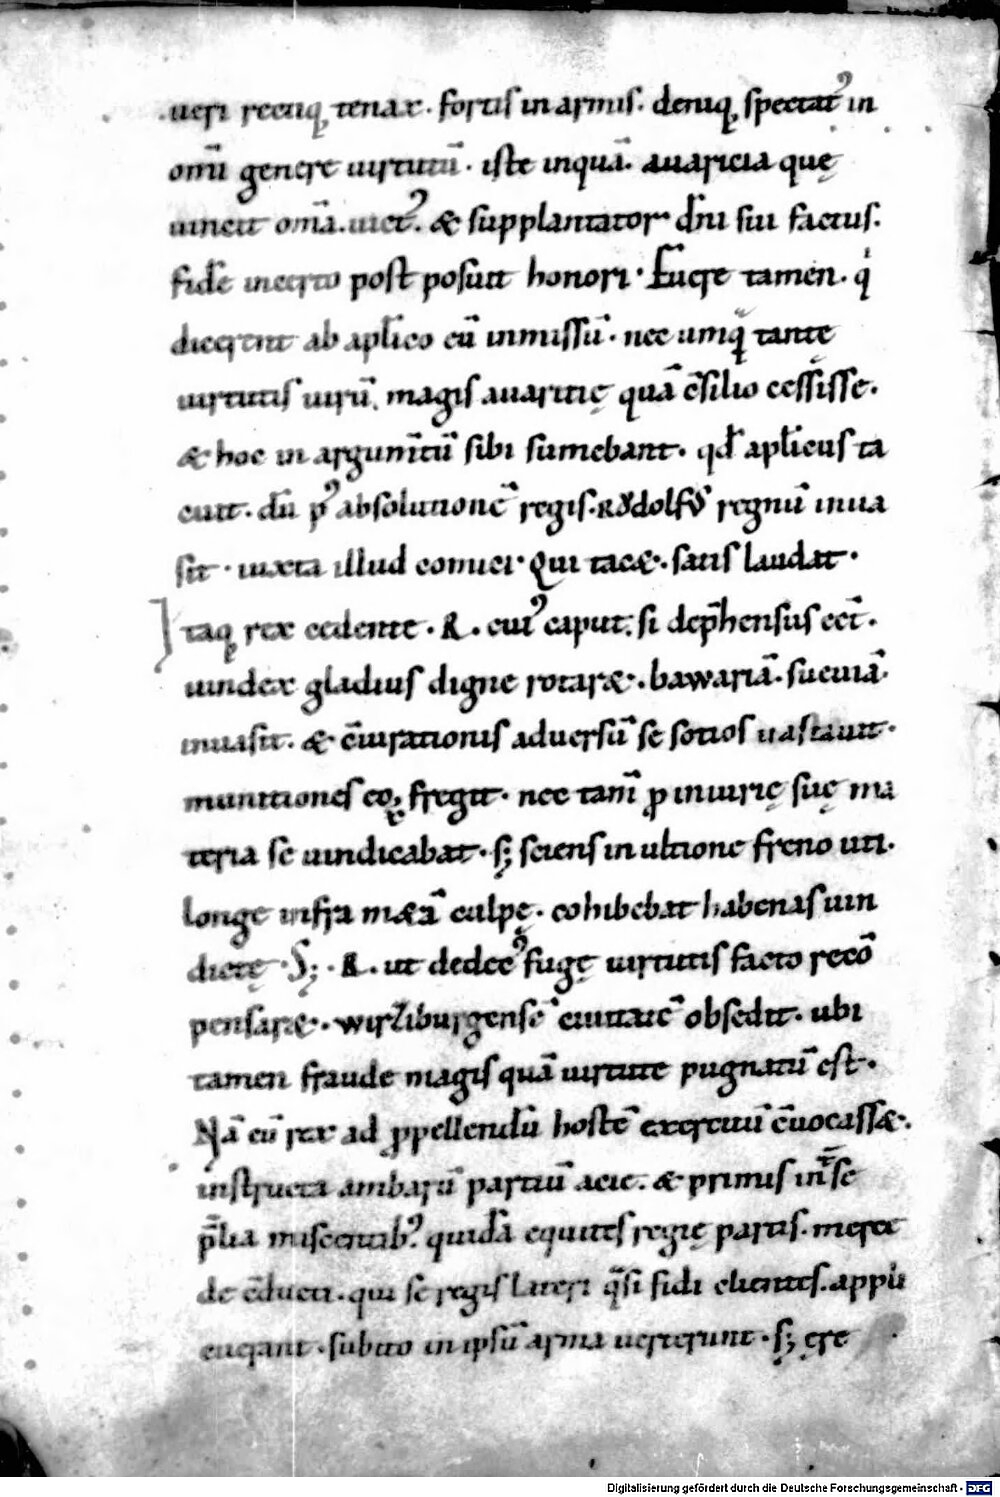 ueri rectiq; tenax. fortis in armis. deniq; spectat᾽ in
om̄i genere uirtutū. iste inquā. auaricia quę
uincit om̄a. uict᾽. & supplantator dn̄i sui factus.
fidē incerto post posuit honori. Fuere tamen. qi
dicerent ab aplico eū inmissū. nec umqᷓ tantę
uirtutis uirū. magis auaritię quā cс̄silio cessisse.
& hoc in argum̄tū sibi sumebant. qđ aplicus ta
cuit. dū p᾽ absolutionē regis. Rŏdolfᵘˢ regnū inua
sit. iuxta illud comici. Qui tacæ. satis laudat.
Itaq; rex cedente. R. cui᾽ caput. si dep̄hensus eēt.
uindex gladius digne rotaræ. bawariā. sueuiā.
inuasit. & c̄iurationis aduersū se sotios uastauit.
munitiones eoꝝ fregit. nec tam̄ ꝓ iniurię suę ma
teria se uindicabat. s; sciens in ultione freno uti.
longe infra mæā culpę. cohibebat habenas uin
dictę. S;. R. ut dedec᾽ fugę uirtutis facto recō
pensaræ. wirziburgensē ciuitatē obsedit. ubi
tamen fraude magis quā uirtute pugnatū est.
Nā cū rex ad ꝓpellendū hostē exercitū c̄uocassæ.
instructa ambarū partiū acie. & primis int̄ se
p̄lia miscentib᾽. quidā equites regię partis. merce
de c̄ducti. qui se regis lateri q̄si fidi clientes. appli
cuerant. subito in ipsū arma uerterunt. s; cre